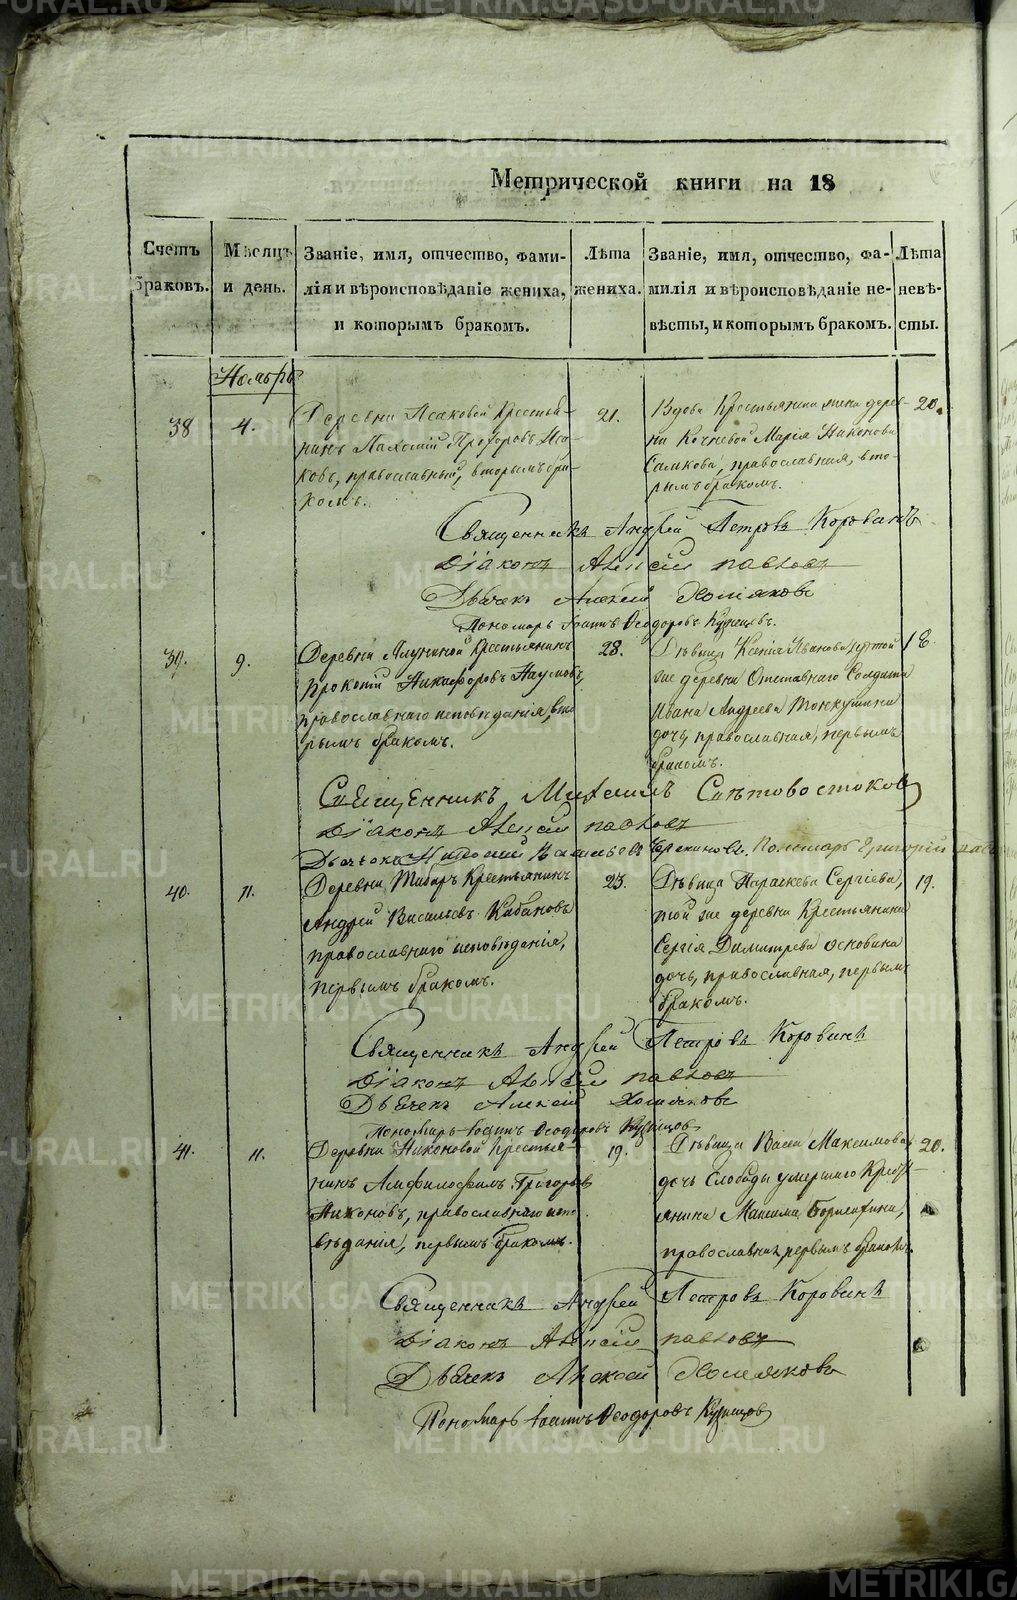 Метрической книги на 18
Счетъ браковъ.
Мѣсяцъ и день.
Званіе, имя, отчество, фами-
лія и вѣроисповѣданіе жениха,
и которымъ бракомъ.
Лѣта
жениха.
Званіе, имя, отчество, фа-
милія и вѣроисповѣданіе не-
вѣсты, и которымъ бракомъ.
Лѣта
невѣ-
сты.
Ноябрь
38
4.
Деревни Исаковой Крестья-
нинъ Прохоровъ Иса-
ковъ, православный, вторымъ бра-
комъ.
21.
Вдова Крестьянина жена дерев-
ни Кочневой Марія Никонова
православная, вто-
рымъ бракомъ.
20.
Священникъ Андрей Петровъ Коровинъ
Діаконъ Алексій Павловъ
Дьячекъ Алексій Хомяковъ
Пономарь Іоаннъ Ѳеодоровъ Кузнецовъ.
39.
9.
Деревни Крестьянинъ
Прокопій Никифоровъ Наумовъ,
православнаго исповѣданія, вто-
рымъ бракомъ.
28.
Дѣвица Ксенія Иванова, той
же деревни Отставнаго Солдата
Ивана Андреева
дочь, православная, первымъ
бракомъ.
18.
Священникъ Михаилъ Свѣтовостоковъ
Діаконъ Алексій Павловъ
Дьячекъ Пономарь Григорій
40.
11.
Деревни Крестьянинъ
Андрей Васильевъ Кабановъ
православнаго исповѣданія,
первымъ бракомъ.
23.
Дѣвица Параскева Сергіева,
той же деревни Крестьянина
Сергія Димитрева
дочь, православная, первымъ
бракомъ.
19.
Священникъ Андрей Петровъ Коровинъ
Діаконъ Алексій Павловъ
Дьячекъ Алексій Хомяковъ
Пономарь Іоаннъ Ѳеодоровъ Кузнецовъ
41.
11.
Деревни Никоновой Крестья-
нинъ Амфилофилъ Григорьевъ
Никоновъ, православнаго испо-
вѣданія, первымъ бракомъ.
19.
Дѣвица Васса Максимова
дочь Слободы умершаго Кресть-
янина Максима
православная, первымъ бракомъ.
20.
Священникъ Андрей Петровъ Коровинъ
Діаконъ Алексій Павловъ
Дьячекъ Алексій Хомяковъ
Пономарь Іоаннъ Ѳеодоровъ Кузнецовъ
METRIKI.GASO-URAL.RU